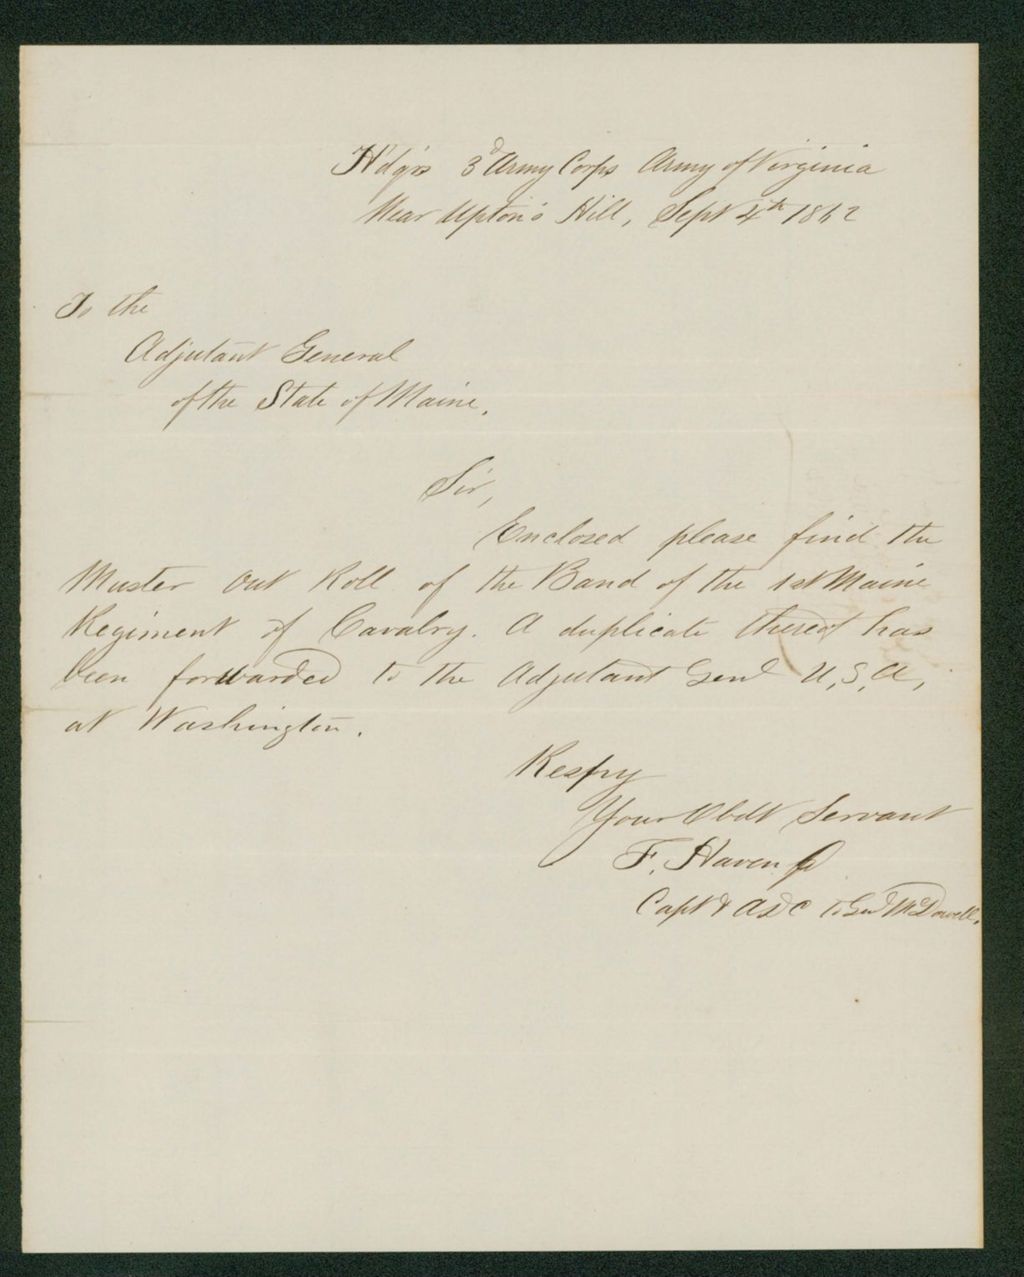 Hdqrs 3d Army Corps Army of Virginia
Near Upton's Hill, Sept 4th 1862
To the
Adjutant General
of the State of Maine.
Sir,
Enclosed please find the
Muster Out Roll of the Band of the 1st Maine
Regiment of Cavalry. A duplicate thereof has
been forwarded to the Adjutant Genl U.S.A,
at Washington.
Respy
Your Obdt Servant
F. Haven Jr
Capt & ADC to Genl McDowell.